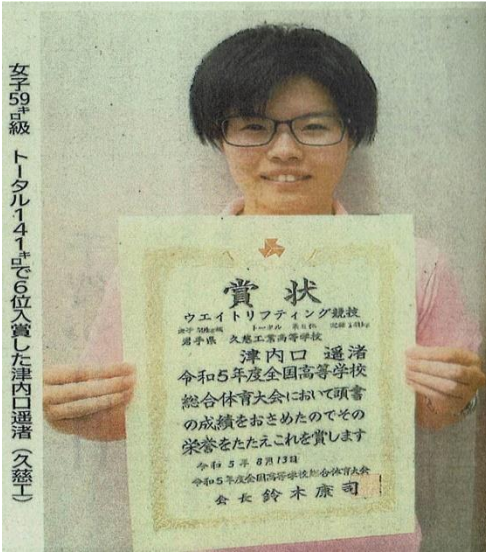 女子59㌔級　トータル141㌔で6位入賞した津内口遥渚（久慈工）
賞状
ウエイトリフティング競技
女子 59kg級　トータル　第6位　記録 141kg
岩手県　久慈工業高等学校
津内口　遥渚
令和5年度全国高等学校
総合体育大会において頭書
の成績をおさめたのでその
栄誉をたたえこれを賞します
令和5年8月13日
令和5年度全国高等学校総合体育大会
会長 鈴木康司